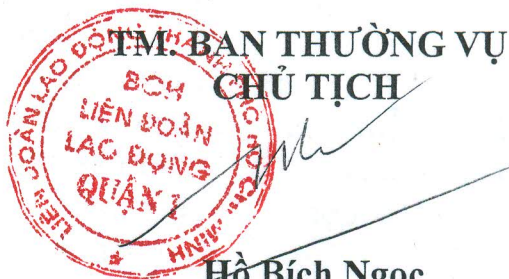 TM. BAN THƯỜNG VỤ
CHỦ TỊCH
BCH
LIÊN ĐOÀN
LAO ĐỘNG
QUẬN 1
Hồ Bích Ngọc